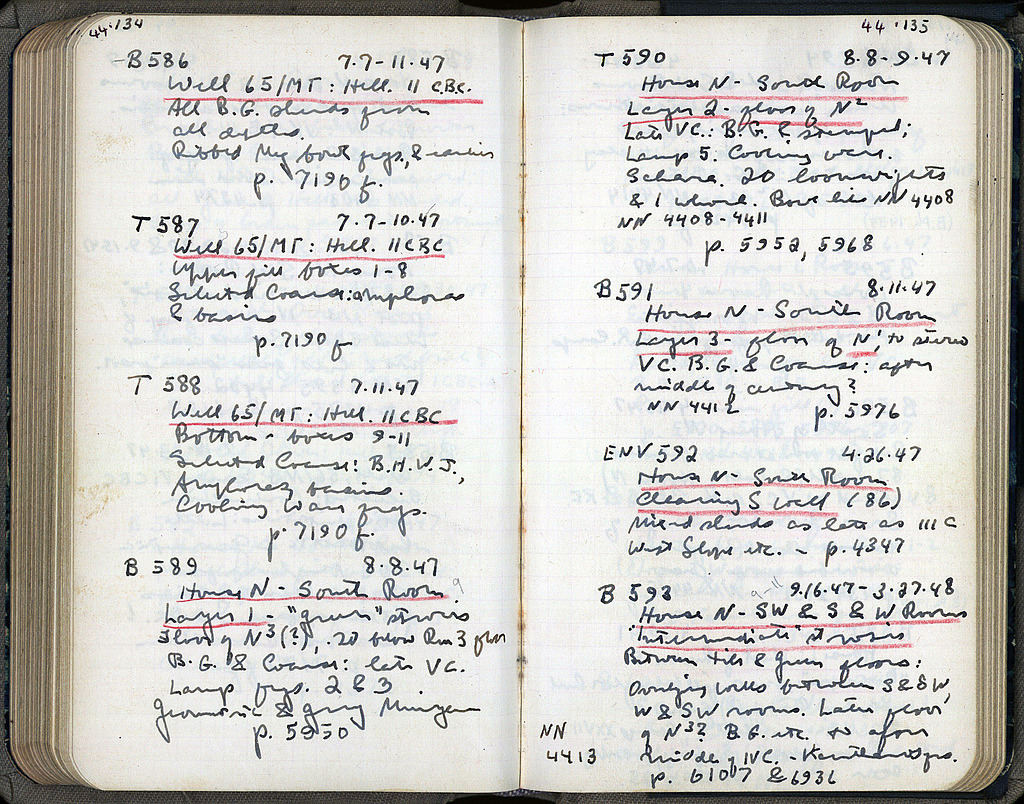 44·134
B586 7.7-11.47
Well 65/MT: Hell. II CBC.
All B.G. sherds from
all depths.
Ribbed Meg bowl frgs, & earlier
p. 7190 f.
T 587 7.7-10.47
Well 65/MT: Hell. II CBC
Upper fill boxes 1-8
Selected Coarse: amphoras
& basins
p. 7190 f
T 588 7.11.47
Well 65/MT: Hell. II CBC
Bottom - boxes 9-11
Selected Coarse: B.H.W.J.,
Amphoras, basins.
Cooking Ware frgs.
p 7190 f.
B 589 8.8.47
House N - South Room
Layer 1 - "green" strosis
Floor of N³(?), .20 below Rm 3 floor
B.G. & Coarse: late VC.
Lamp frgs. 2 & 3.
Geometric & gray Minyan
p. 5950
44·135
T 590 8.8-9.47
House N - South Room
Layer 2 - floor of N²
Late VC.: B.G. & stamped;
Lamp 5. Cooking ware.
Eschara. 20 loomweights
& 1 whorl. Bowl lid NN 4408
NN 4408-4411
p. 5952, 5968
B 591 8.11.47
House N - South Room
Layer 3 - floor of N¹, to stereo
VC. B.G. & Coarse: after
middle of century?
NN 4412 p. 5976
ENV 592 4.26.47
House N - South Room
Clearing S wall (86)
Mixed sherds as late as III C
West Slope etc. - p. 4347
B 593 9.16.47-3.27.48
House N - SW & S & W Rooms
"Intermediate" strosis
Between tile & green floors:
Overlying walls between S & SW,
W & SW rooms. Later floor
of N³? B.G. etc. to after
NN
4413
middle of IVC. - Kantharos frgs.
p. 6107 & 6936